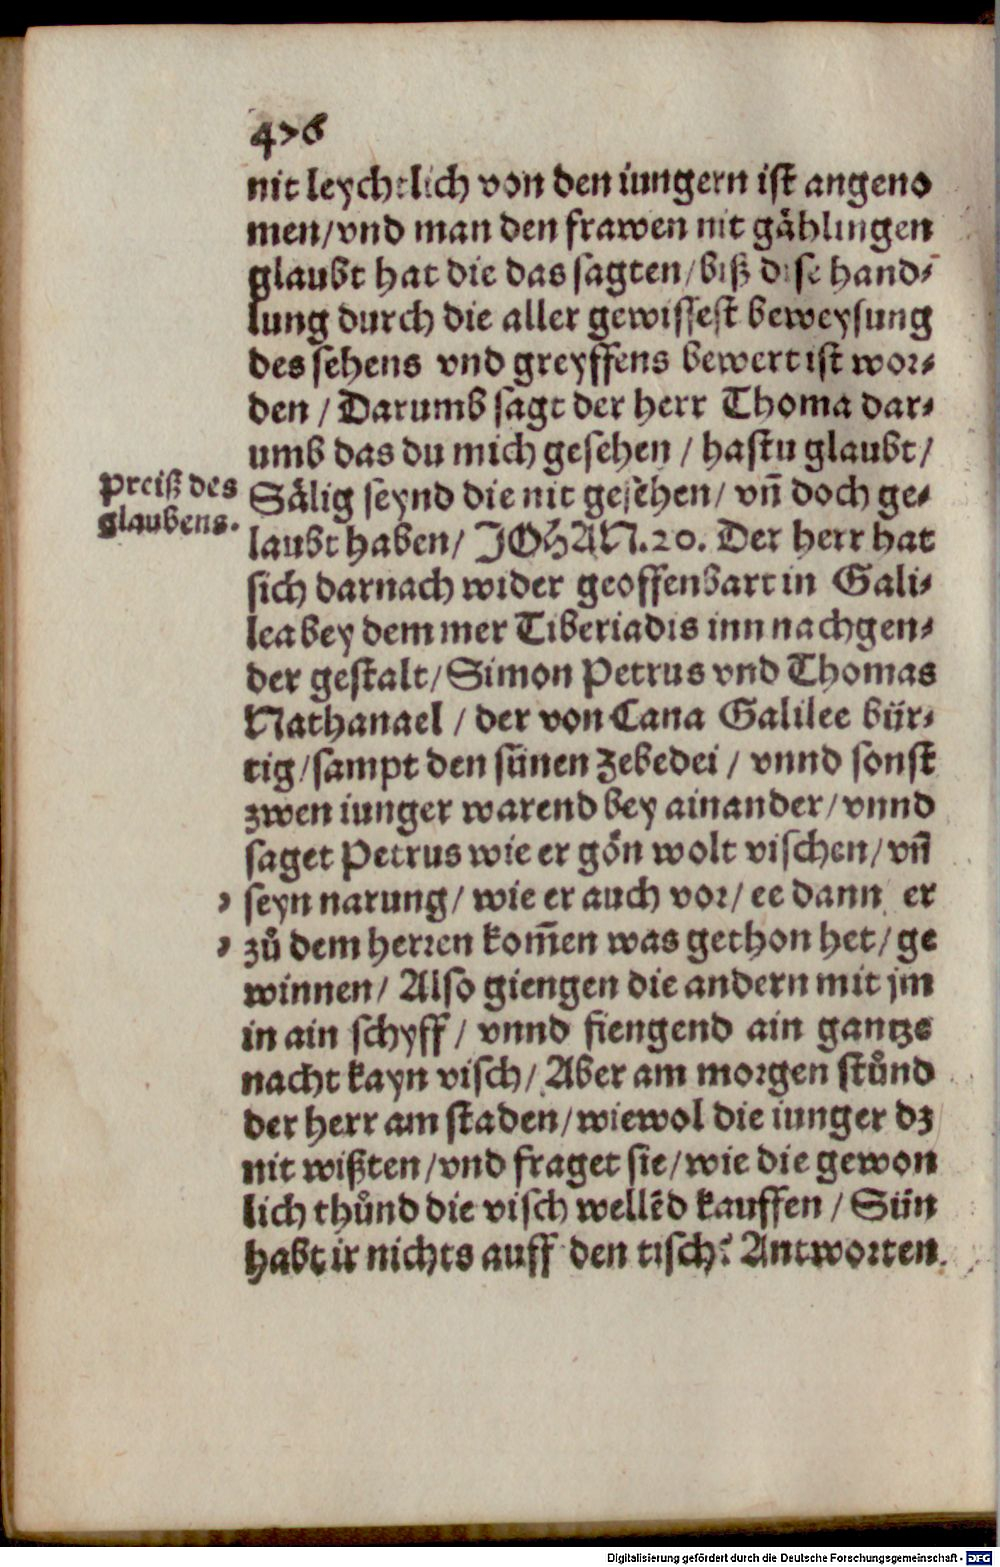 476
nit leychtlich von den iungern ist angeno
men/vnd man den frawen nit gählingen
glaubt hat die das sagten/biß dise hand⸗
lung durch die aller gewissest beweysung
des sehens vnd greyffens bewert ist wor⸗
den / Darumb sagt der herr Thoma dar⸗
umb das du mich gesehen / hastu glaubt/
Preiß des
glaubens.
Sälig seynd die nit gesehen/ vn̄ doch ge⸗
laubt haben/ JOHAN.20. Der herr hat
sich darnach wider geoffenbart in Gali⸗
lea bey dem mer Tiberiadis inn nachgen⸗
der gestalt/Simon Petrus vnd Thomas
Nathanael / der von Cana Galilee bür⸗
tig/sampt den sünen Zebedei / vnnd sonst
zwen iunger warend bey ainander/vnnd
saget Petrus wie er gön wolt vischen/vn̄
seyn narung/ wie er auch vor/ ee dann er
zů dem herren kom̄en was gethon het/ge
winnen/ Also giengen die andern mit jm
in ain schyff/ vnnd fiengend ain gantze
nacht kayn visch/ Aber am morgen stůnd
der herr am staden/wiewol die iunger dz
nit wißten/vnd fraget sie/wie die gewon
lich thůnd die visch wellēd kauffen / Sün
habt ir nichts auff den tisch? Antworten
Digitalisierung gefördert durch die Deutsche Forschungsgemeinschaft - DFG